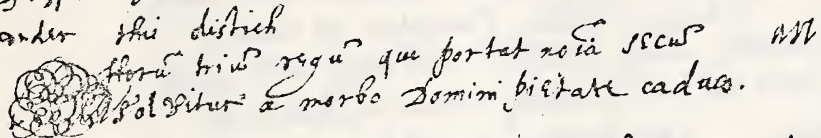 under this distich
Horū triū regū que portat noīa secū an
Solvitur a morbo Domini pietate caduco.